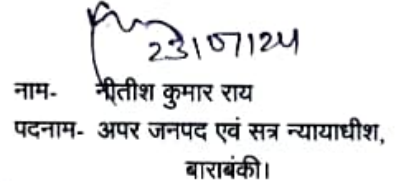 23/07/24
नाम- नीतीश कुमार राय
पदनाम- अपर जनपद एवं सत्र न्यायाधीश,
बाराबंकी।